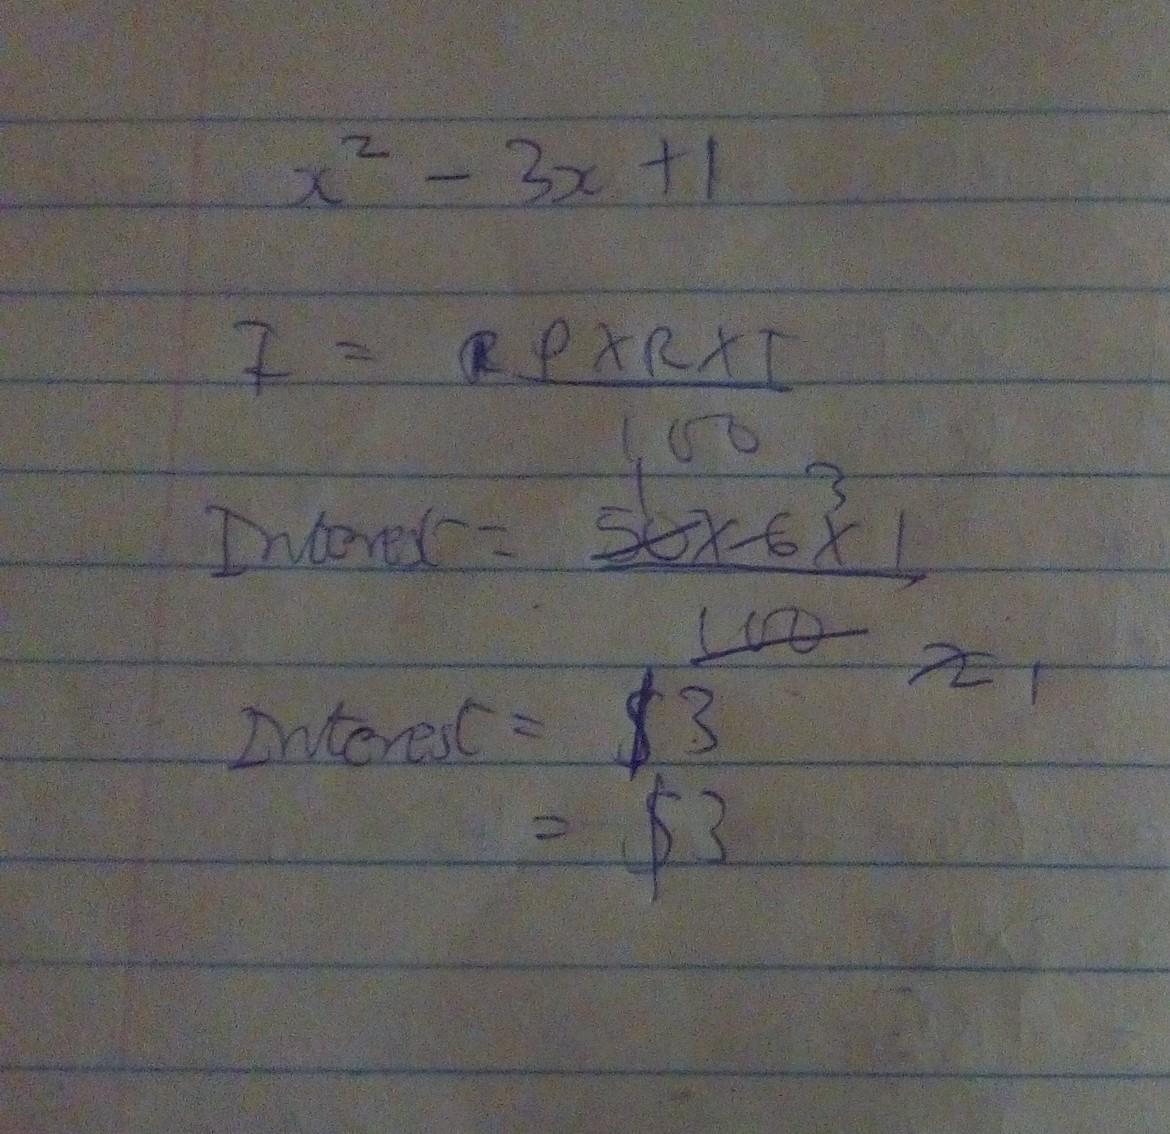 x² - 3x + 1
I = P X R X T
100
1 3
Interest = 50 X 6 X 1
100 2 1
Interest = $3
= $3